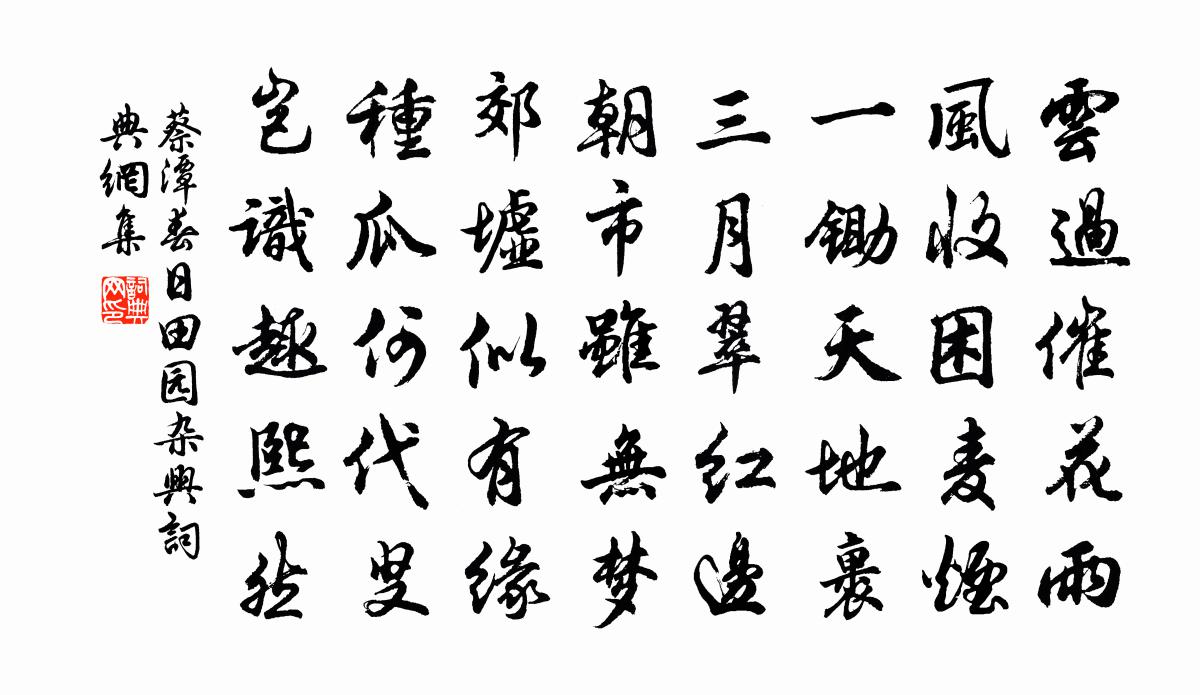 雲過催花雨
風收困麦煙
一鋤天地裹
三月翠紅邊
朝市雖無梦
郊墟似有緣
種瓜何代叟
岂識趣熙然
蔡潭春日田园杂興詞
典網集
詞典网印